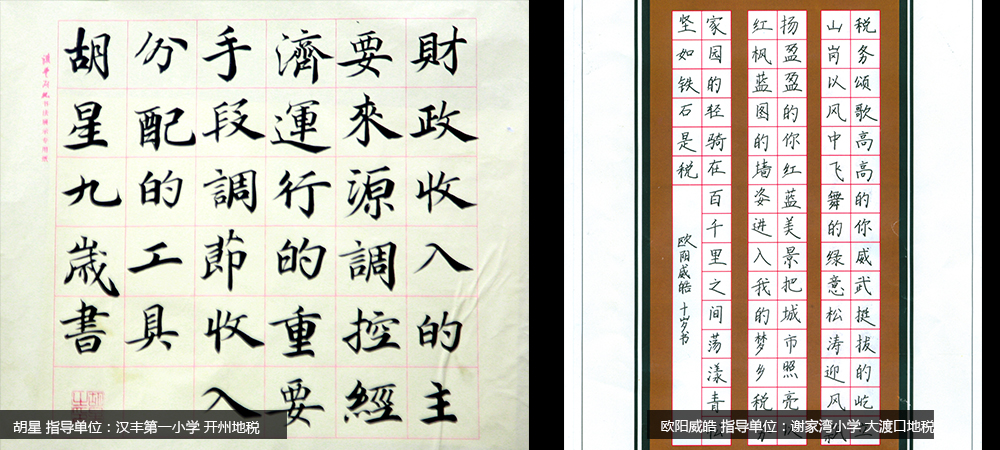 財政收入的主
要來源調控經
濟運行的重要
手段調節收入
分配的工具
胡星九歲書
胡星 指导单位：汉丰第一小学 开州地税
税务颂歌高高的你威武挺拔的屹
山岗以风中飞舞的绿意松涛迎风飘
扬盈盈的你红蓝美景把城市照亮
红枫蓝图的墙姿进入我的梦乡税
家园的轻骑在百千里之间荡漾青
坚如铁石是税
欧阳威皓十岁书
欧阳威皓 指导单位：谢家湾小学 大渡口地税